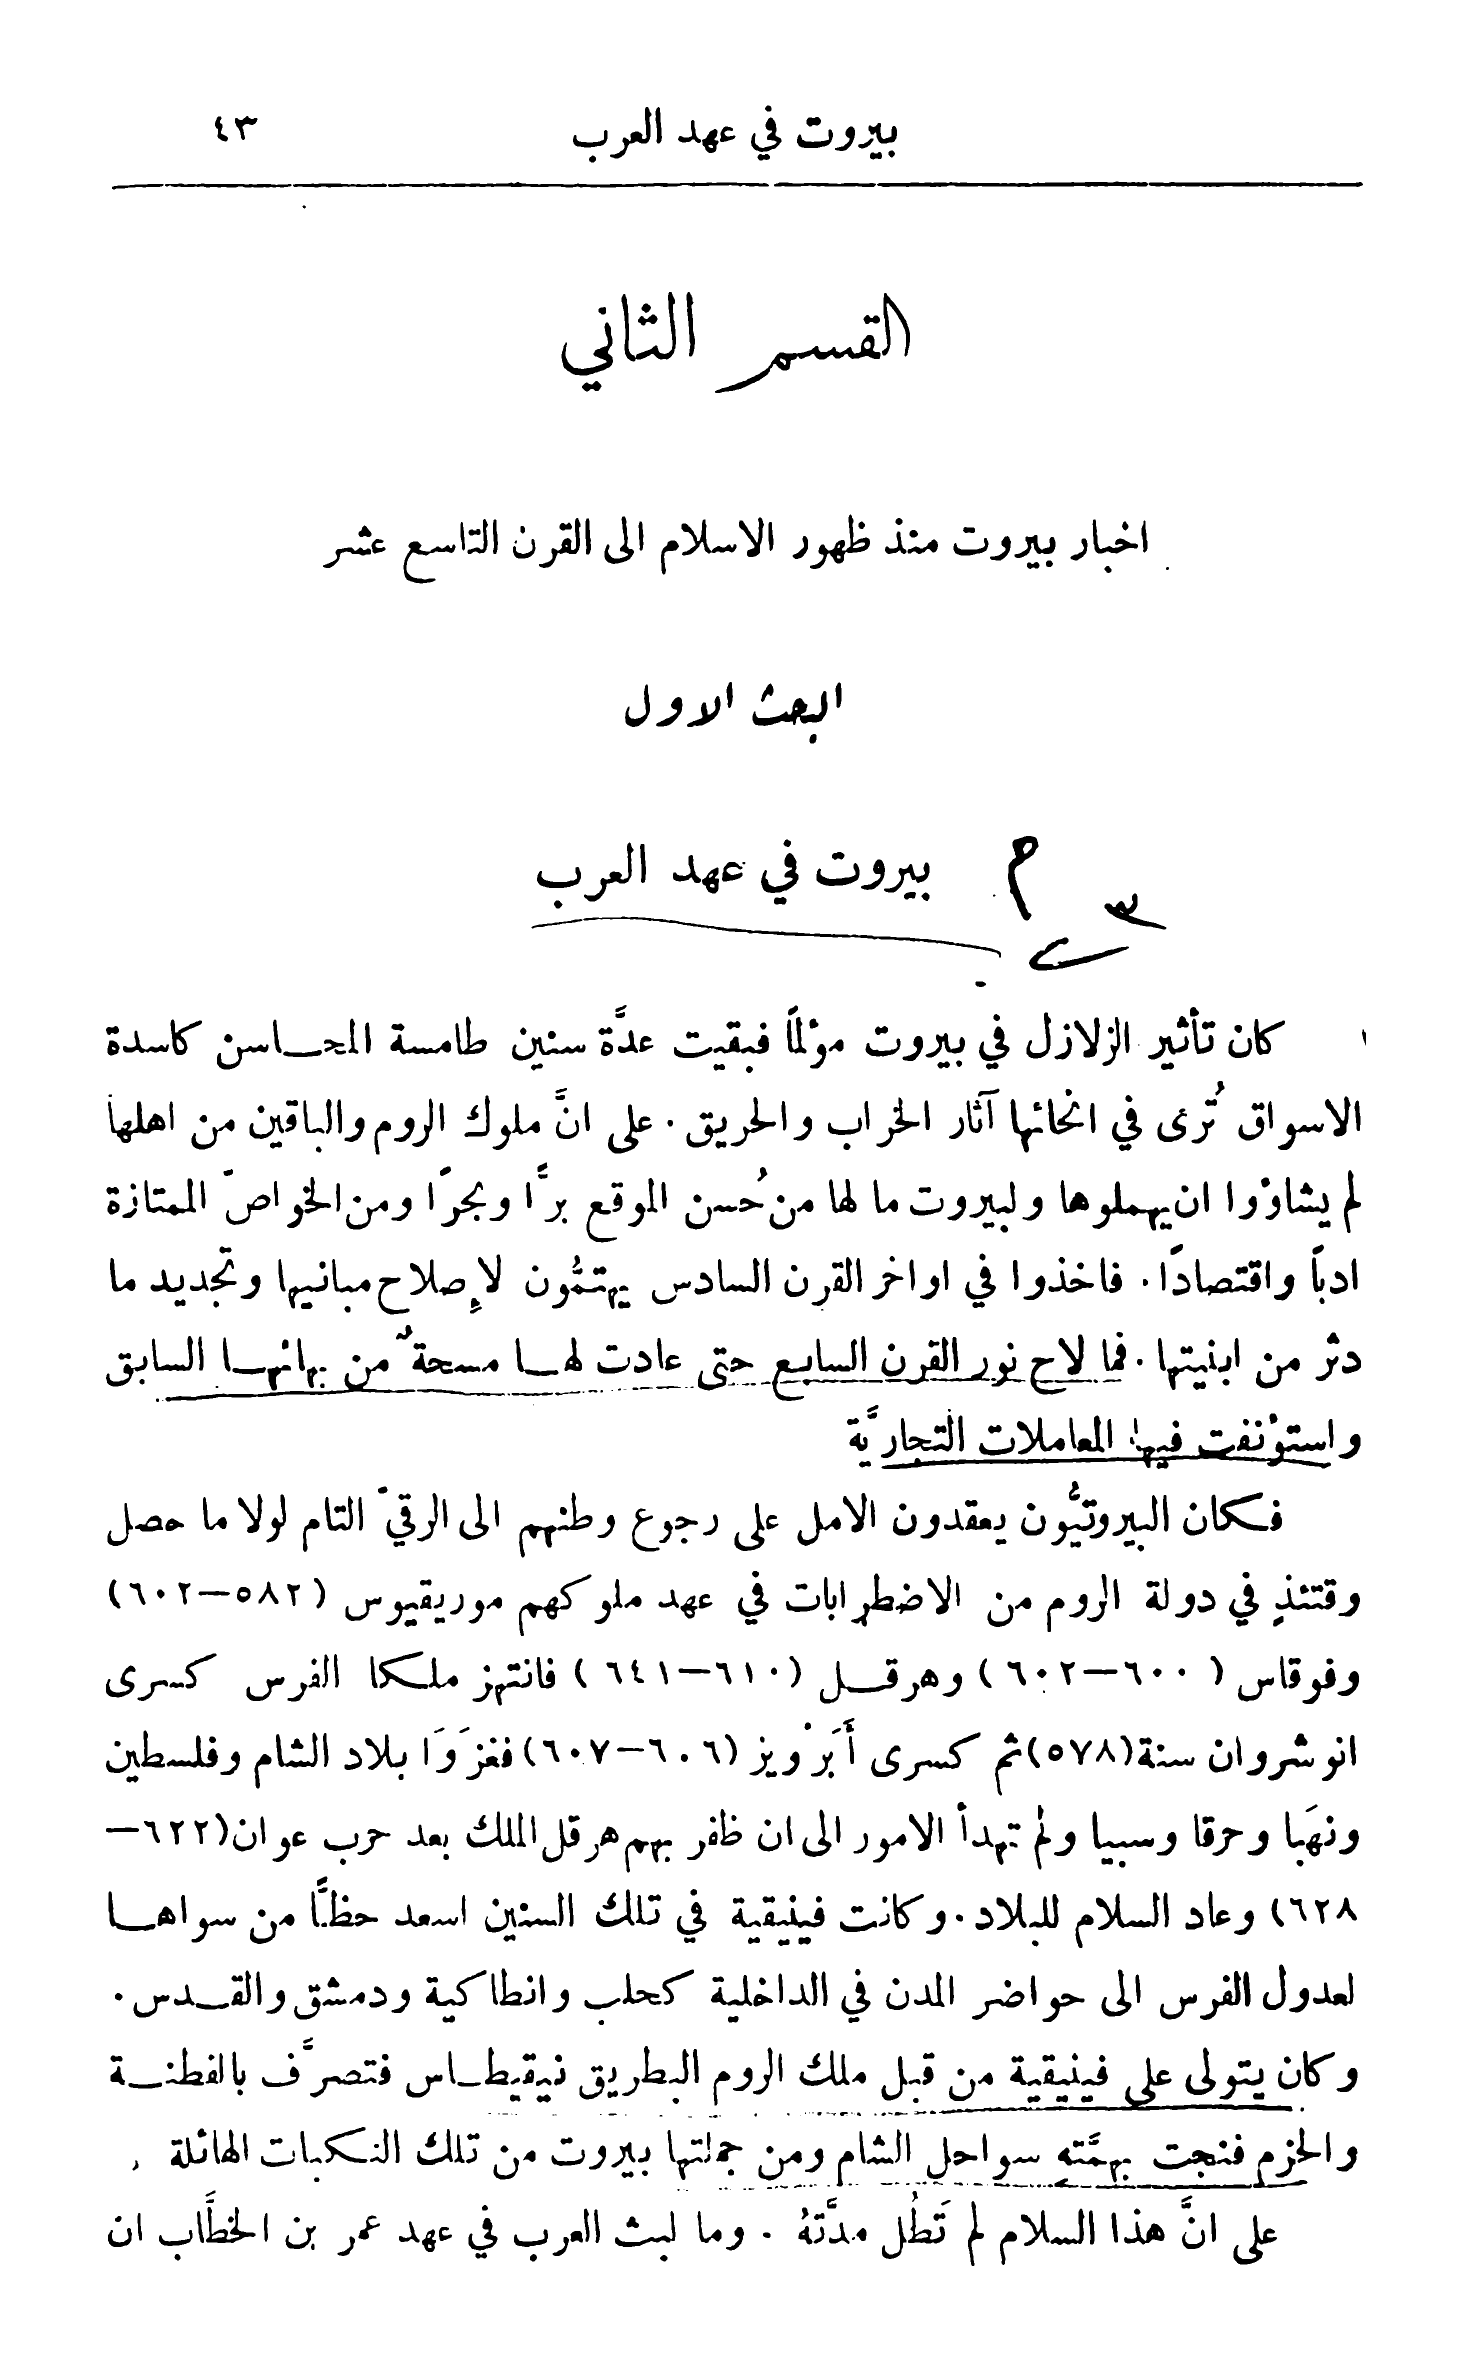 بيروت في عهد العرب ٤٣
القسم الثاني
اخبار بيروت منذ ظهور الاسلام الى القرن التاسع عشر
البحث الاول
بيروت في عهد العرب
كان تأثير الزلازل في بيروت مؤلماً فبقيت عدَّة سنين طامسة المحاسن كاسدة
الاسواق تُرى في انحائها آثار الخراب والحريق . على انَّ ملوك الروم والباقين من اهلها
لم يشاؤوا ان يهملوها ولبيروت ما لها من حُسن الموقع برًّا وبحرًا ومن الخواصّ الممتازة
ادباً واقتصادًا . فاخذوا في اواخر القرن السادس يهتمُّون لإصلاح مبانيها وتجديد ما
دثر من ابنيتها . فما لاح نور القرن السابع حتى عادت لها مسحةٌ من بهائها السابق
واستؤنفت فيها المعاملات التجاريَّة
فكان البيروتيُّون يعقدون الامل على رجوع وطنهم الى الرقيّ التام لولا ما حصل
وقتئذٍ في دولة الروم من الاضطرابات في عهد ملوكهم موريقيوس (٥٨٢–٦٠٢)
وفوقاس (٦٠٠–٦٠٢) وهرقل (٦١٠–٦٤١) فانتهز ملكا الفرس كسرى
انوشروان سنة (٥٧٨) ثم كسرى أَبَرْويز (٦٠٦–٦٠٧) فغزَوَا بلاد الشام وفلسطين
ونهَبا وحرقا وسبيا ولم تهدأ الامور الى ان ظفر بهم هرقل الملك بعد حرب عوان (٦٢٢–
٦٢٨) وعاد السلام للبلاد . وكانت فينيقية في تلك السنين اسعد حظًّا من سواها
لعدول الفرس الى حواضر المدن في الداخلية كحلب وانطاكية ودمشق والقدس .
وكان يتولى على فينيقية من قبل ملك الروم البطريق نيقيطاس فتصرَّف بالفطنة
والحزم فنجت بهمَّته سواحل الشام ومن جملتها بيروت من تلك النكبات الهائلة
على انَّ هذا السلام لم تَطُل مدَّتهُ . وما لبث العرب في عهد عمر بن الخطَّاب ان